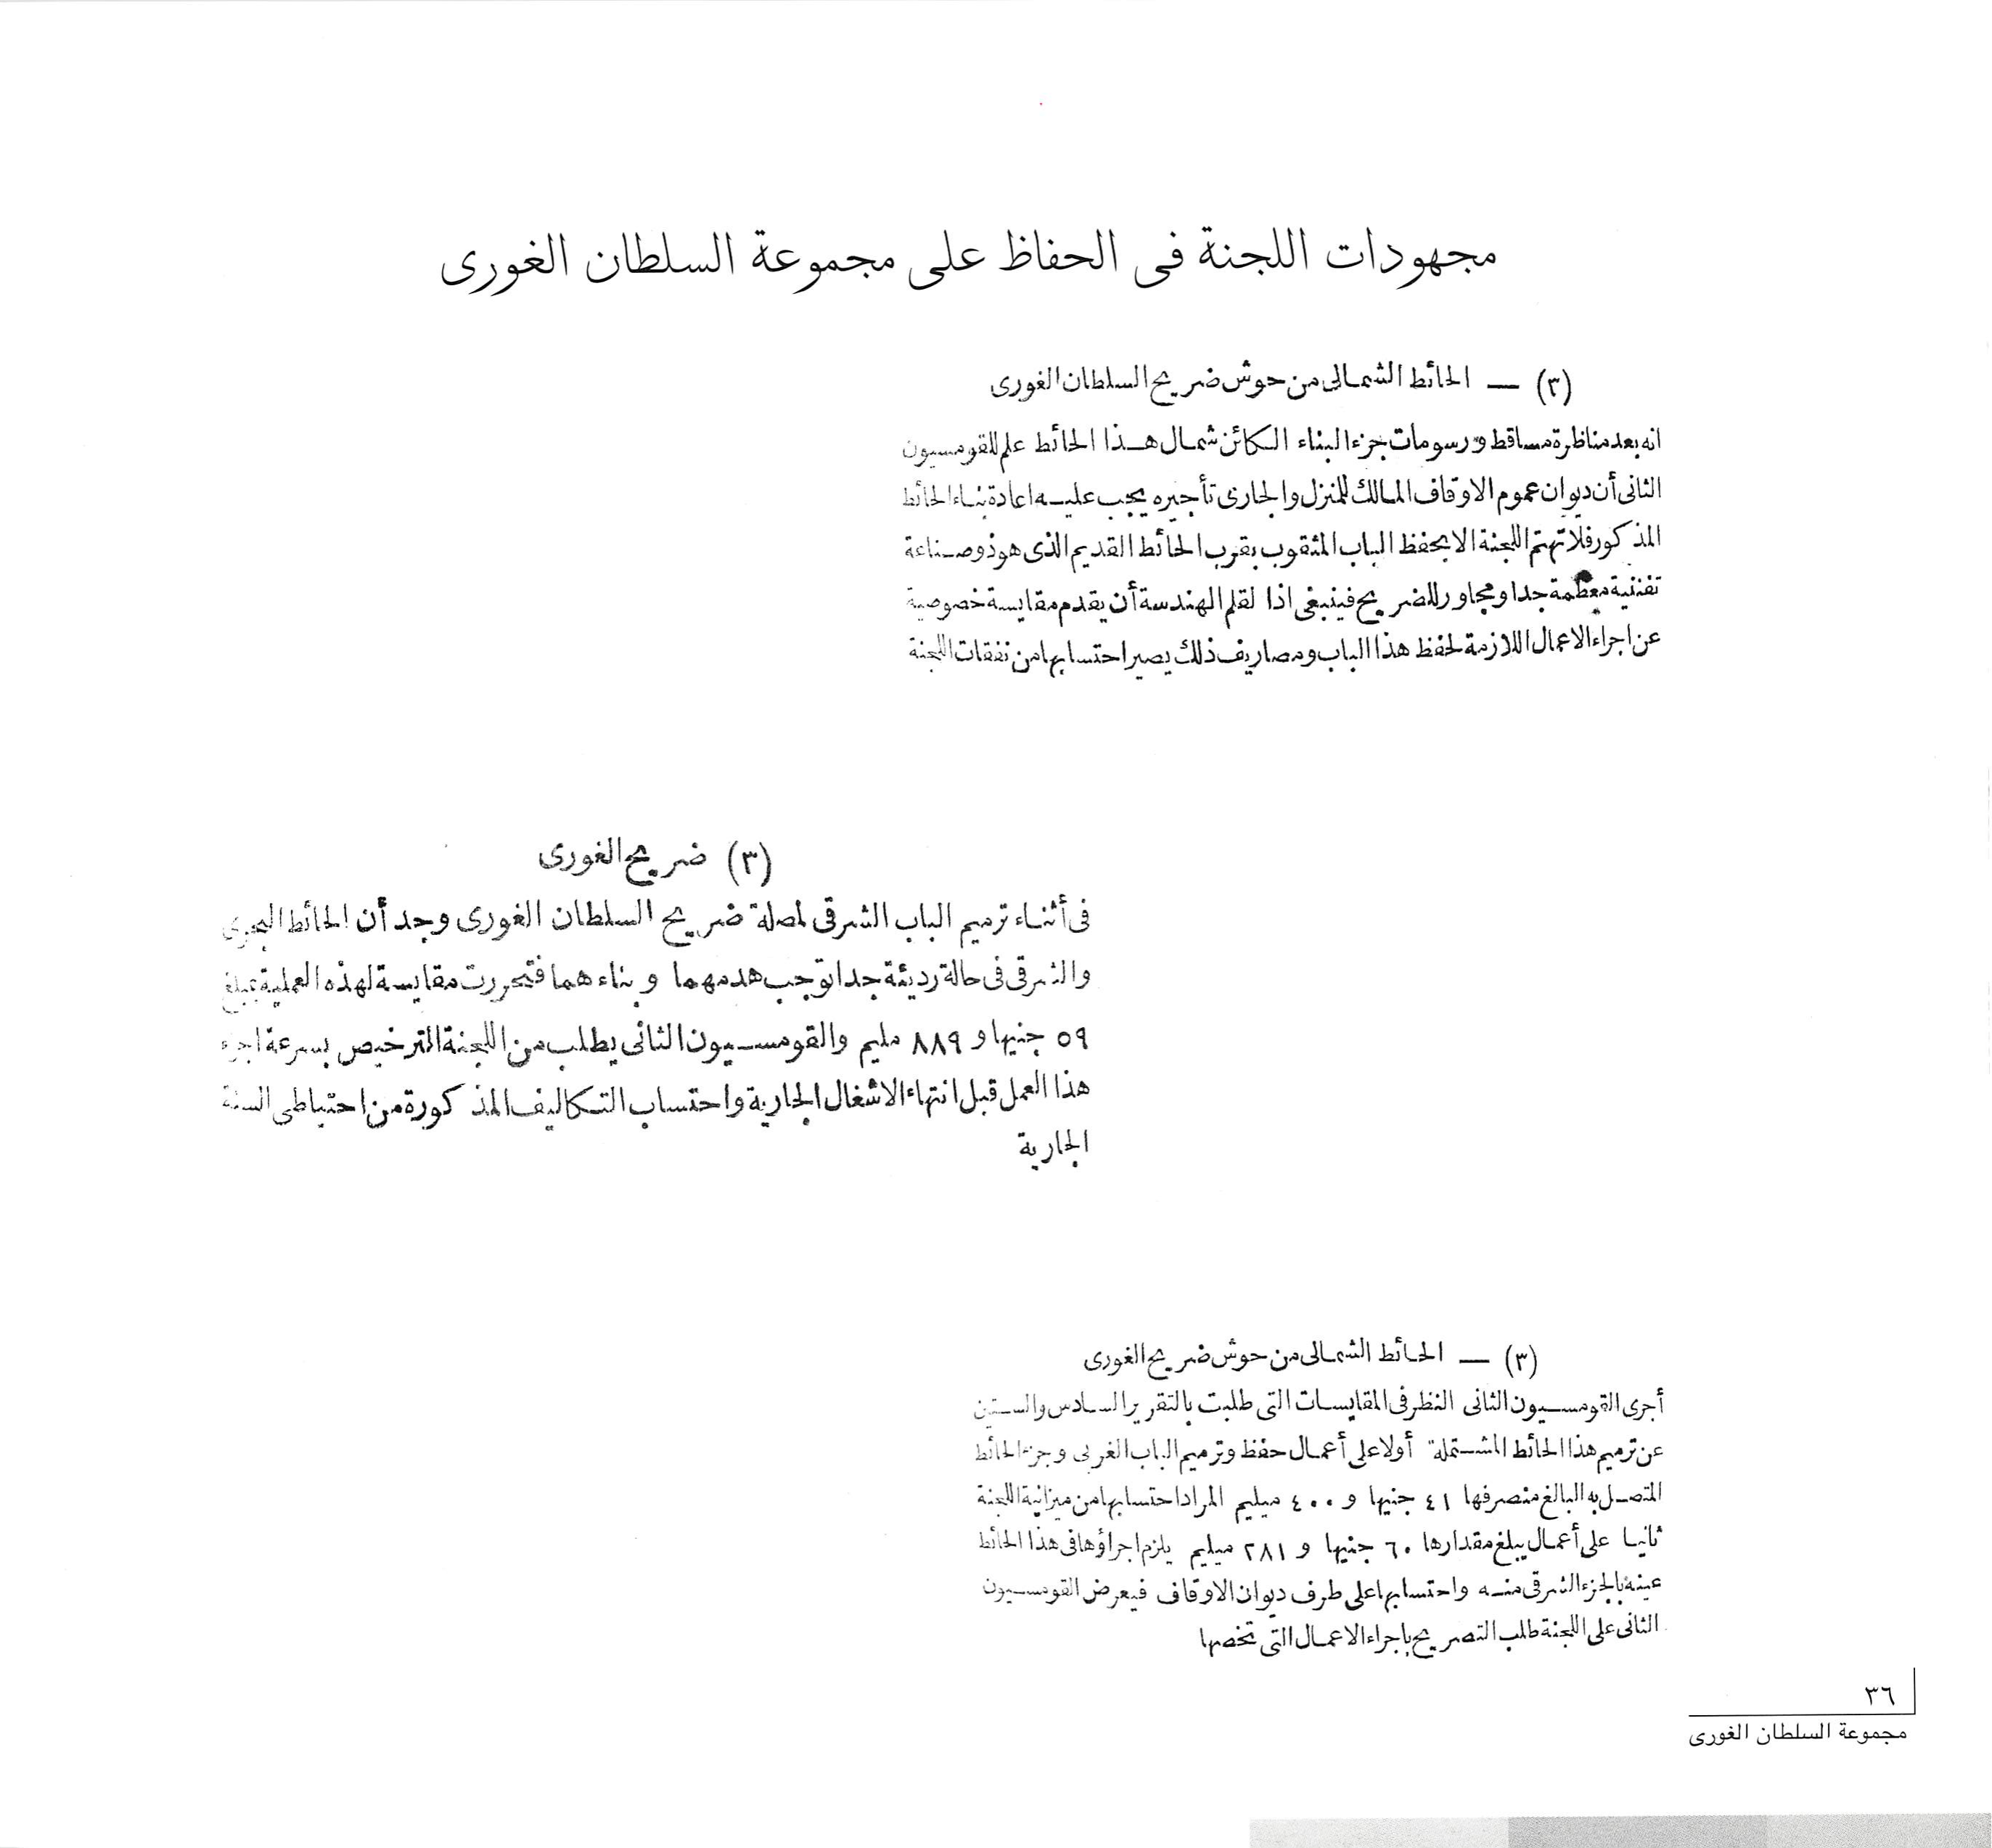 مجهودات اللجنة فى الحفاظ على مجموعة السلطان الغورى
(٣) — الحائط الشمالى من حوش ضريح السلطان الغورى
انه بعد مناظرة مساقط ورسومات جزء البناء الكائن شمال هذا الحائط علم للقومسيون
الثانى أن ديوان عموم الاوقاف المالك للمنزل والجارى تأجيره يجب عليه اعادة بناء الحائط
المذكور فلا تهتم اللجنة الا بحفظ الباب المثقوب بقرب الحائط القديم الذى هو ذو صناعة
تفننية معظمة جدا ومجاور للضريح فينبغى اذا لقلم الهندسة أن يقدم مقايسة خصوصية
عن اجراء الاعمال اللازمة لحفظ هذا الباب ومصاريف ذلك يصير احتسابها من نفقات اللجنة
(٣) ضريح الغورى
فى أثناء ترميم الباب الشرقى لمصلة ضريح السلطان الغورى وجد أن الحائط البحرى
والشرقى فى حالة رديئة جدا توجب هدمهما وبناءهما فتحررت مقايسة لهذه العملية بمبلغ
٥٩ جنيها و ٨٨٩ مليم والقومسيون الثانى يطلب من اللجنة الترخيص بسرعة اجراء
هذا العمل قبل انتهاء الاشغال الجارية واحتساب التكاليف المذكورة من احتياطى السنة
الجارية
(٣) — الحائط الشمالى من حوش ضريح الغورى
أجرى القومسيون الثانى النظر فى المقايسات التى طلبت بالتقرير السادس والستين
عن ترميم هذا الحائط المشتملة أولا على أعمال حفظ وترميم الباب الغربى وجزء الحائط
المتصل به البالغ منصرفها ٤١ جنيها و ٤٠٠ ميليم المراد احتسابها من ميزانية اللجنة
ثانيا على أعمال يبلغ مقدارها ٦٠ جنيها و ٢٨١ ميليم يلزم اجراؤها فى هذا الحائط
عينه بالجزء الشرقى منه واحتسابها على طرف ديوان الاوقاف فيعرض القومسيون
الثانى على اللجنة طلب التصريح باجراء الاعمال التى تخصها
٣٦
مجموعة السلطان الغورى